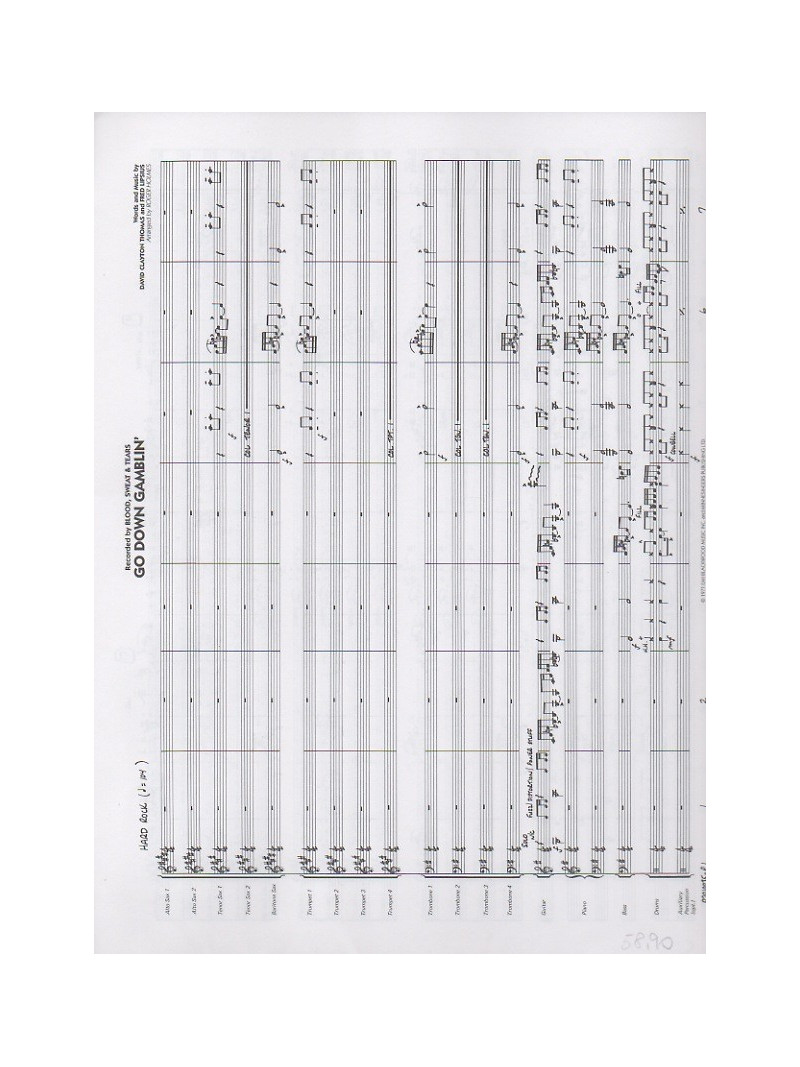 Recorded by BLOOD, SWEAT & TEARS
GO DOWN GAMBLIN'
Words and Music by
DAVID CLAYTON THOMAS and FRED LIPSIUS
Arranged by ROGER HOLMES
HARD ROCK (♩= 104)
Alto Sax 1
Alto Sax 2
Tenor Sax 1
Tenor Sax 2
COL TENOR 1
Baritone Sax
f
Trumpet 1
f
Trumpet 2
Trumpet 3
Trumpet 4
COL TPT. 1
Trombone 1
f
Trombone 2
COL TBN. 1
Trombone 3
COL TBN. 1
Trombone 4
SOLO
N/C
FUZZ/DISTORTION/
Guitar
f
Piano
f
Bass
f
FILL
FILL
Drums
mf
f
COWBELL
Auxiliary
Percussion
f
1
2
6
7
58,90